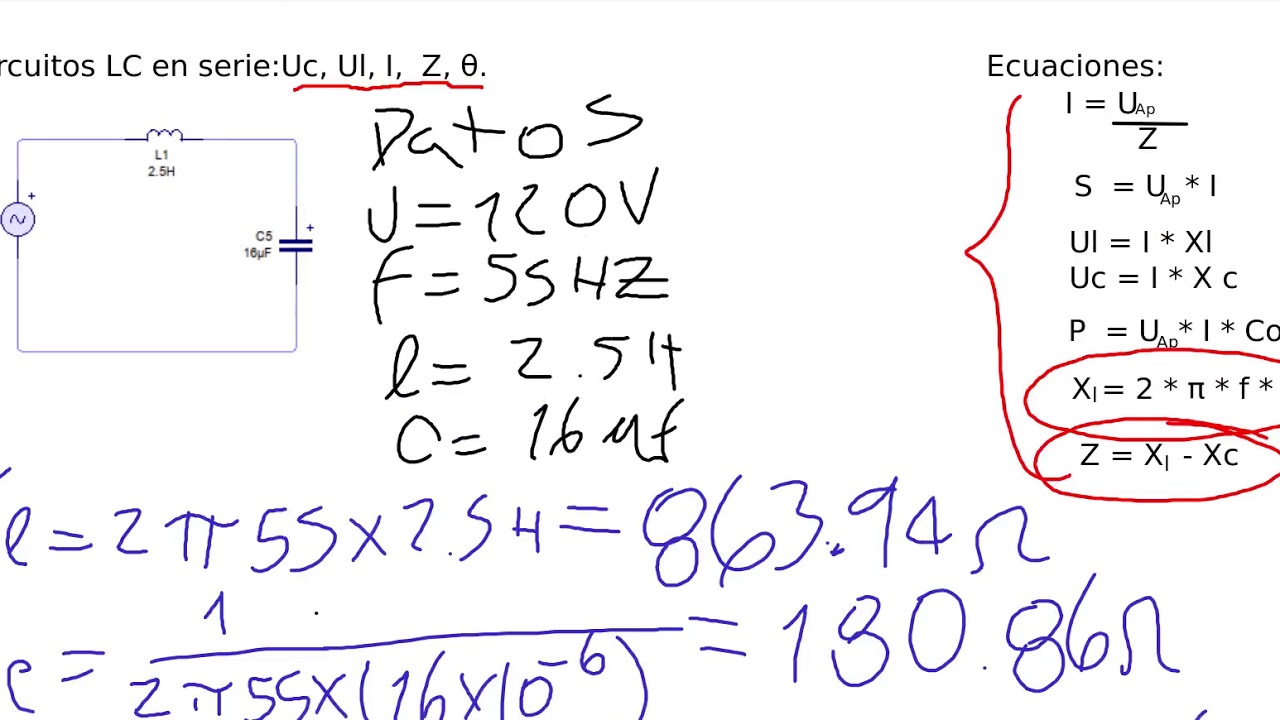 rcuitos LC en serie:Uc, Ul, I, Z, θ.
L1
2.5H
C5
16µF
Datos
U = 120V
F = 55HZ
l = 2.5H
C = 16 µf
Ecuaciones:
I = UAp
Z
S = UAp * I
Ul = I * Xl
Uc = I * X c
P = UAp * I * Co
Xl = 2 * π * f *
Z = Xl - Xc
l = 2π55x2.5H = 863.94Ω
1
c = = 180.86Ω
2π55x(16x10-6)